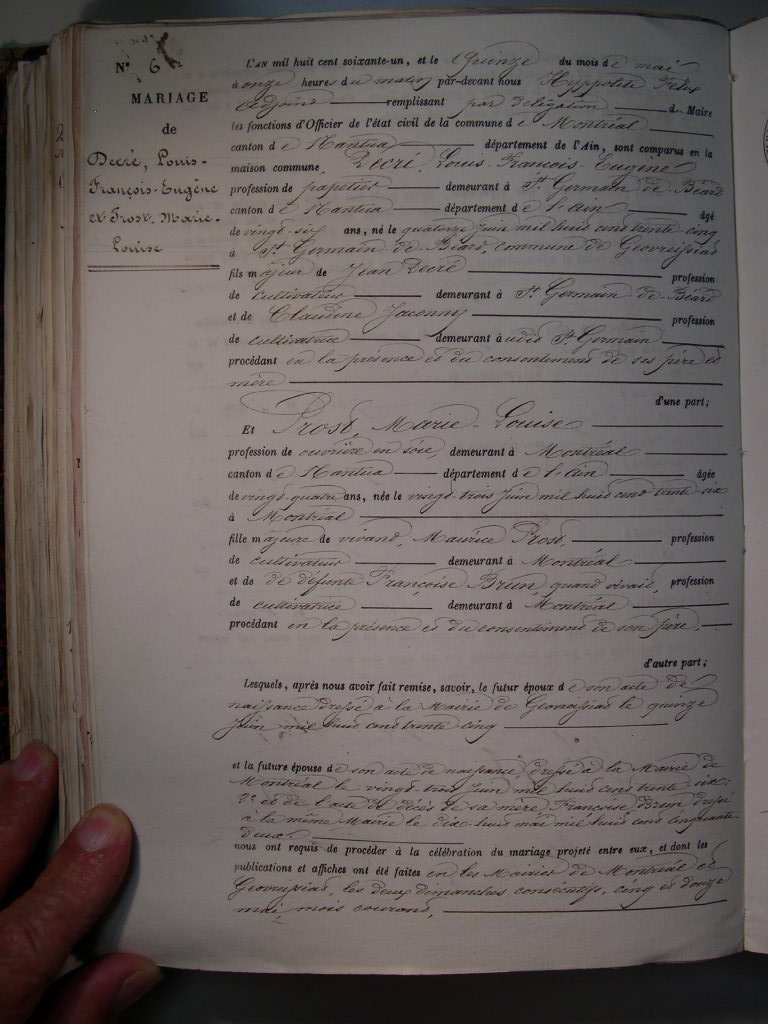 N° 6
MARIAGE
de
Decré, Louis-
François-Eugène
et Prost, Marie-
Louise
L'AN mil huit cent soixante-un, et le Quinze du mois de mai
à onze heures du matin par-devant nous Hyppolite
adjoint remplissant par délégation du Maire
les fonctions d'Officier de l'état civil de la commune de Montréal
canton de Nantua département de l'Ain, sont comparus en la
maison commune, Decré, Louis-François-Eugène
profession de papetier demeurant à St. Germain de Béard
canton de Nantua département de l'Ain âgé
de vingt-six ans, né le quatorze Juin mil huit cent trente cinq
à St. Germain de Béard, commune de Geovreissiat
fils majeur de Jean Decré profession
de cultivateur demeurant à St. Germain de Béard
et de Claudine profession
de cultivatrice demeurant à udit St. Germain
procédant en la présence et du consentement de ses père et
mère
d'une part;
Et Prost, Marie-Louise
profession de ouvrière en soie, demeurant à Montréal
canton de Nantua département de l'Ain âgée
de vingt-quatre ans, née le vingt-trois Juin mil huit cent trente six
à Montréal
fille majeure de vivant, Maurice Prost, profession
de cultivateur demeurant à Montréal
et de de défunte Françoise Brun, quand vivait, profession
de cultivatrice demeurant à Montréal
procédant en la présence et du consentement de son père.
d'autre part;
Lesquels, après nous avoir fait remise, savoir, le futur époux de son acte de
naissance dressé à la Mairie de le quinze
Juin mil huit cent trente cinq
et la future épouse de son acte de naissance, dressé à la Mairie de
Montréal le vingt-trois Juin mil huit cent trente six;
2° et de l'acte de décès de sa mère, Françoise Brun dressé
à la même Mairie le dix-huit mai mil huit cent cinquante-
deux.
nous ont requis de procéder à la célébration du mariage projeté entre eux, et dont les
publications et affiches ont été faites en les Mairies de Montréal et
Geovreissiat, les deux dimanches consécutifs, cinq et douze
mai, mois courant,